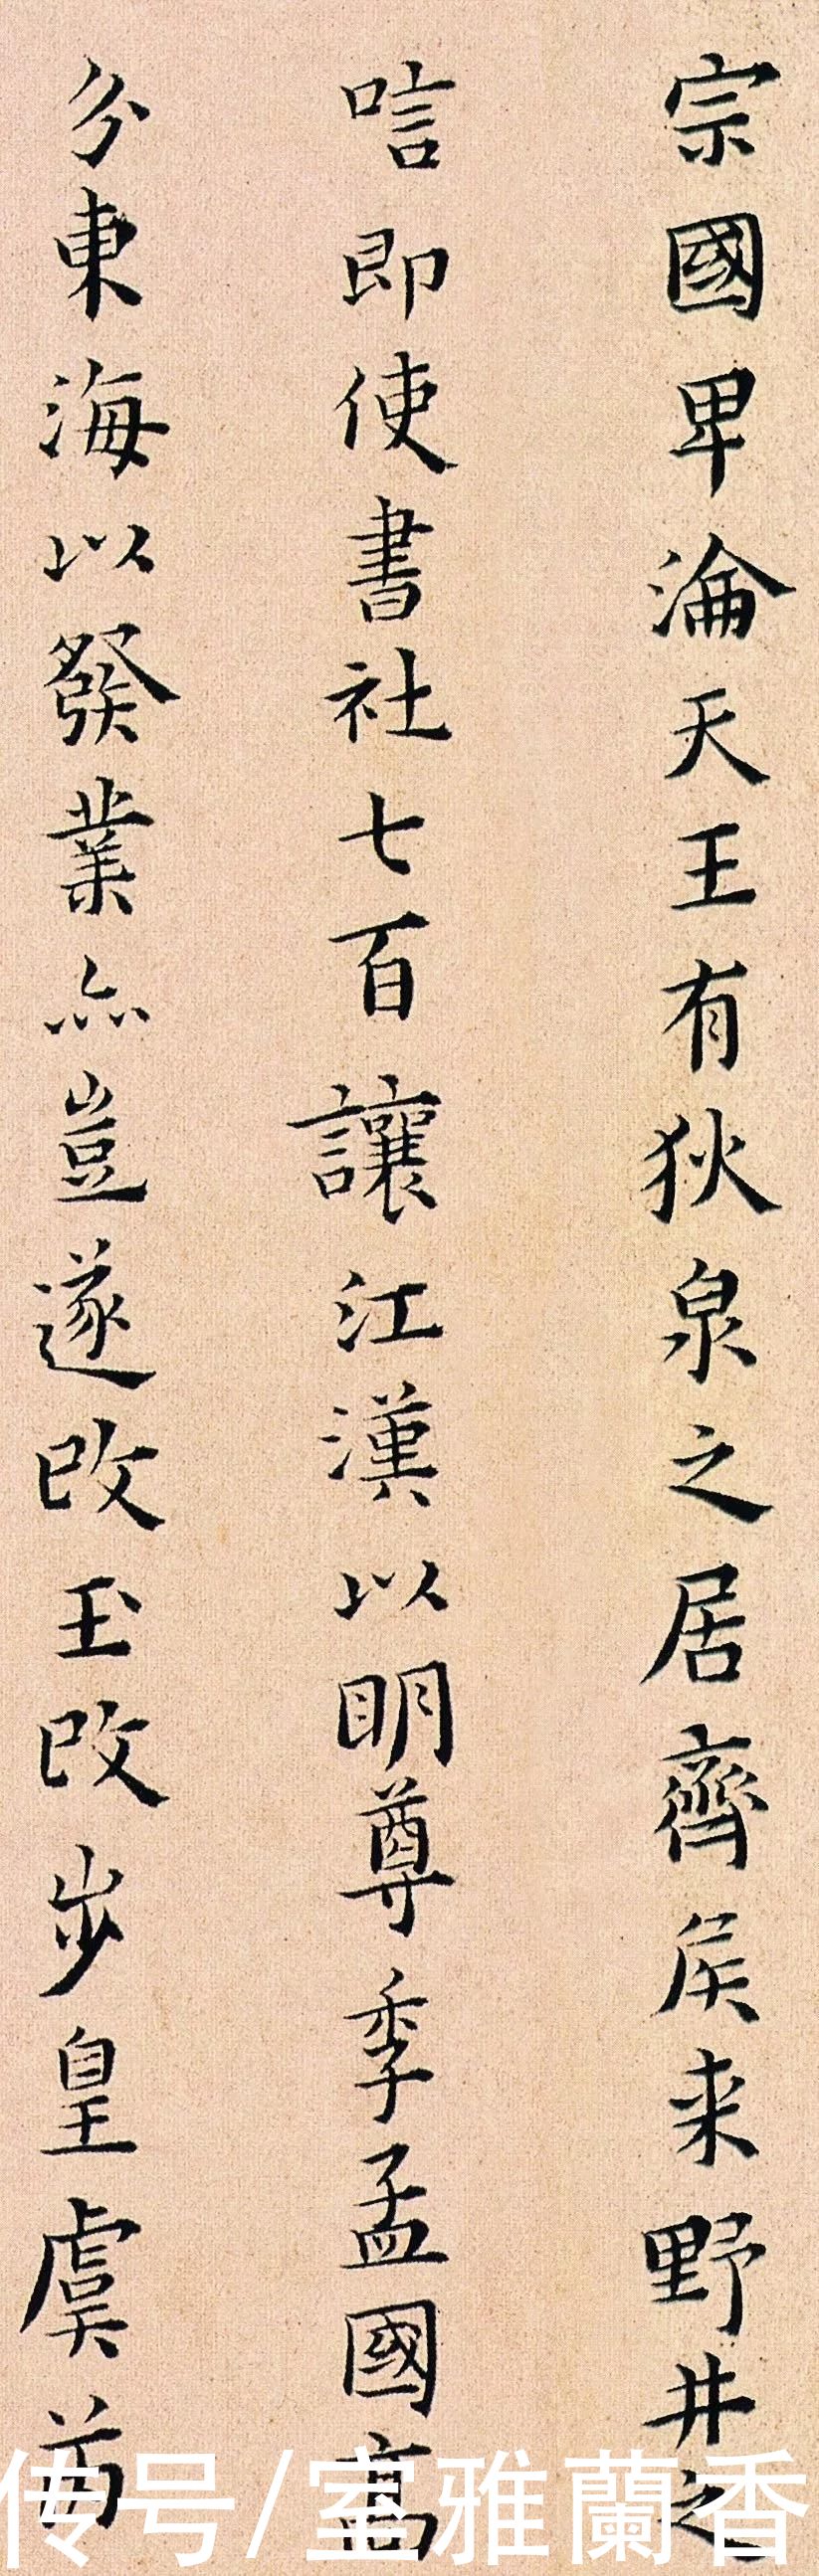 宗國卑淪天王有狄泉之居齊侯来野井之
唁即使書社七百讓江漢以明尊季孟國高
分東海以發業亦豈遂改玉改步皇虞若
传号/室雅蘭香